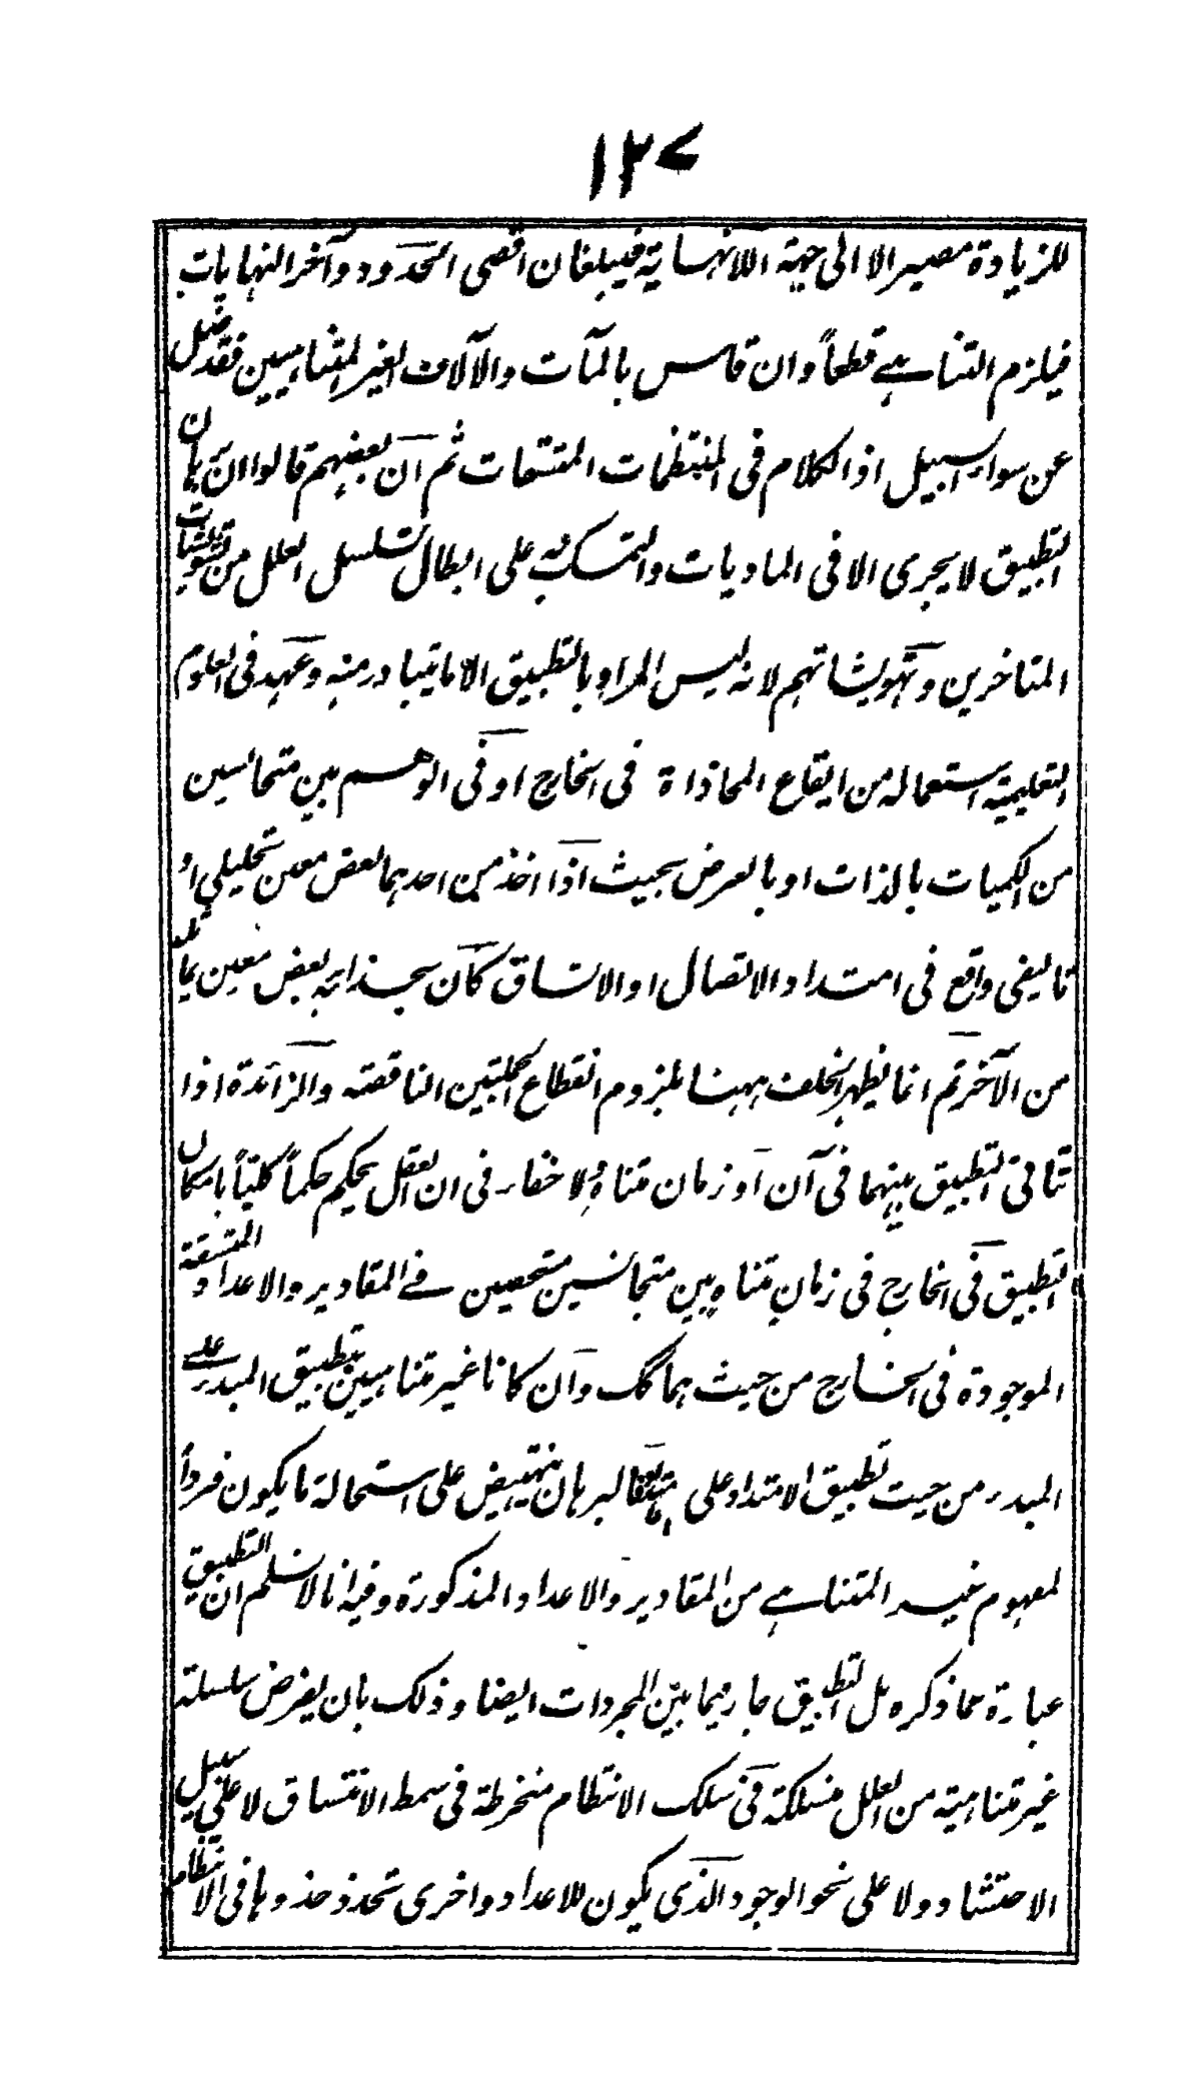 ١٢٧
للزيادة مصير الا الى جهة اللانهاية فيبلغان اقصى الحدود وآخر النهايات
فيلزم التناهي قطعاً وان قاس بالمآت والآلاف الغير المتناهيين فقد ضل
عن سواء السبيل اذ الكلام في المنتظمات المتسقات ثم ان بعضهم قالوا ان برهان
التطبيق لا يجرى الا فى الماديات والتمسك به على ابطال تسلسل العلل من تشويشات
المتاخرين وتهويشاتهم لانه ليس المراد بالتطبيق الا ما يتبادر منه وعهد فى العلوم
التعليمية استعماله من ايقاع المحاذاة فى الخارج او فى الوهم بين متجانسين
من الكميات بالذات او بالعرض بحيث اذا اخذ من احدهما بعض معين تحليلى او
تاليفى واقع فى امتداد الاتصال او الاتساق كان بحذائه بعض معين يماثله
من الآخر ثم انما يظهر الخلف ههنا بلزوم انقطاع الجملتين الناقصة والزائدة اذا
تاتى التطبيق بينهما فى آن او زمان متناه ولا خفاء فى ان العقل يحكم حكماً كلياً بامكان
التطبيق فى الخارج فى زمان متناه بين متجانسين متحصين فى المقادير والاعداد المتسقة
الموجودة فى الخارج من حيث هما كك وان كانا غير متناهيين بتطبيق المبدء على
المبدء من حيث تطبيق الامتداد على فالبرهان ينتهض على استحالة ما يكون فرداً
لمفهوم غير المتناهى من المقادير والاعداد المذكورة وفيه انا لا نسلم ان التطبيق
عبارة عما ذكره بل التطبيق جار فيما بين المجردات ايضا وذلك بان يفرض سلسلة
غير متناهية من العلل منسلكة فى سلك الانتظام منخرطة فى سمط الاتساق لا على سبيل
الاحتشاد ولا على نحو الوجود الذى يكون للاعداد واخرى تحذو حذوها فى الانتظام